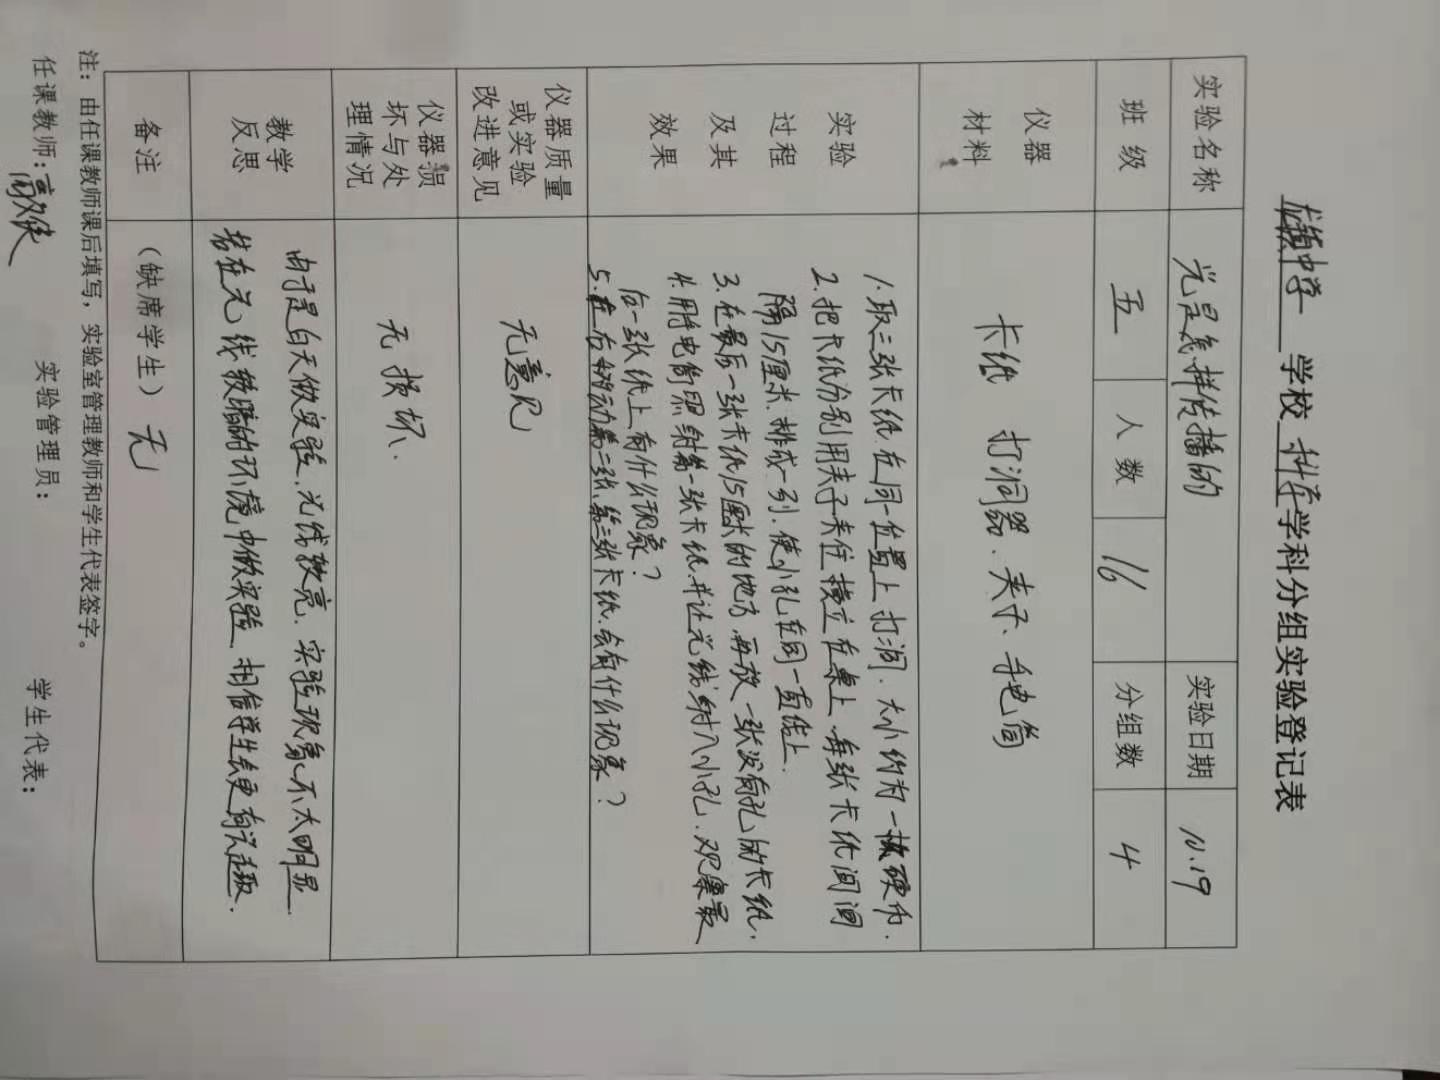 中学 学校 科学 学科分组实验登记表
实验名称 光是怎样传播的 实验日期 10.19
班级 五 人数 16 分组数 4
仪器材料 卡纸 打洞器、夹子、手电筒
实验过程及其效果
1.取三张卡纸在同一位置上打洞.大小约为一枚硬币.
2.把卡纸分别用夹子夹住横立在桌上.每张卡纸间间
隔15厘米.排成一列.使小孔在同一直线上.
3.在最后一张卡纸15厘米的地方.再放一张没有孔的卡纸.
4.用手电筒照射第一张卡纸并让光线射入小孔.观察最
后一张纸上有什么现象?
5.左右移动第二张、第三张卡纸.会有什么现象?
仪器质量或实验改进意见 无意见
仪器损坏与处理情况 无损坏.
教学反思
由于是白天做实验.光线较亮.实验现象不太明显.
若在光线较暗的环境中做实验.相信学生会更有兴趣.
备注 (缺席学生) 无
注：由任课教师课后填写，实验室管理教师和学生代表签字。
任课教师: 实验管理员： 学生代表：